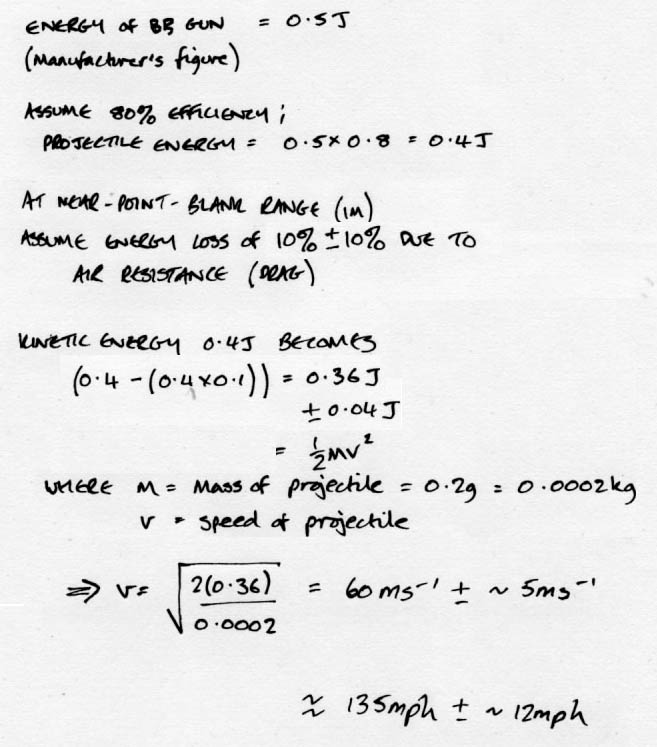 ENERGY OF BB GUN = 0.5J
(Manufacturer's figure)
ASSUME 80% EFFICIENCY;
PROJECTILE ENERGY = 0.5×0.8 = 0.4J
AT NEAR-POINT-BLANK RANGE (1M)
ASSUME ENERGY LOSS OF 10% ±10% DUE TO
AIR RESISTANCE (DRAG)
KINETIC ENERGY 0.4J BECOMES
(0.4 - (0.4×0.1)) = 0.36J
± 0.04J
= 1/2 MV²
WHERE M = Mass of projectile = 0.2g = 0.0002kg
V = speed of projectile
⇒ V = √(2(0.36)/0.0002) = 60ms⁻¹ ± ~ 5ms⁻¹
≈ 135mph ± ~ 12mph